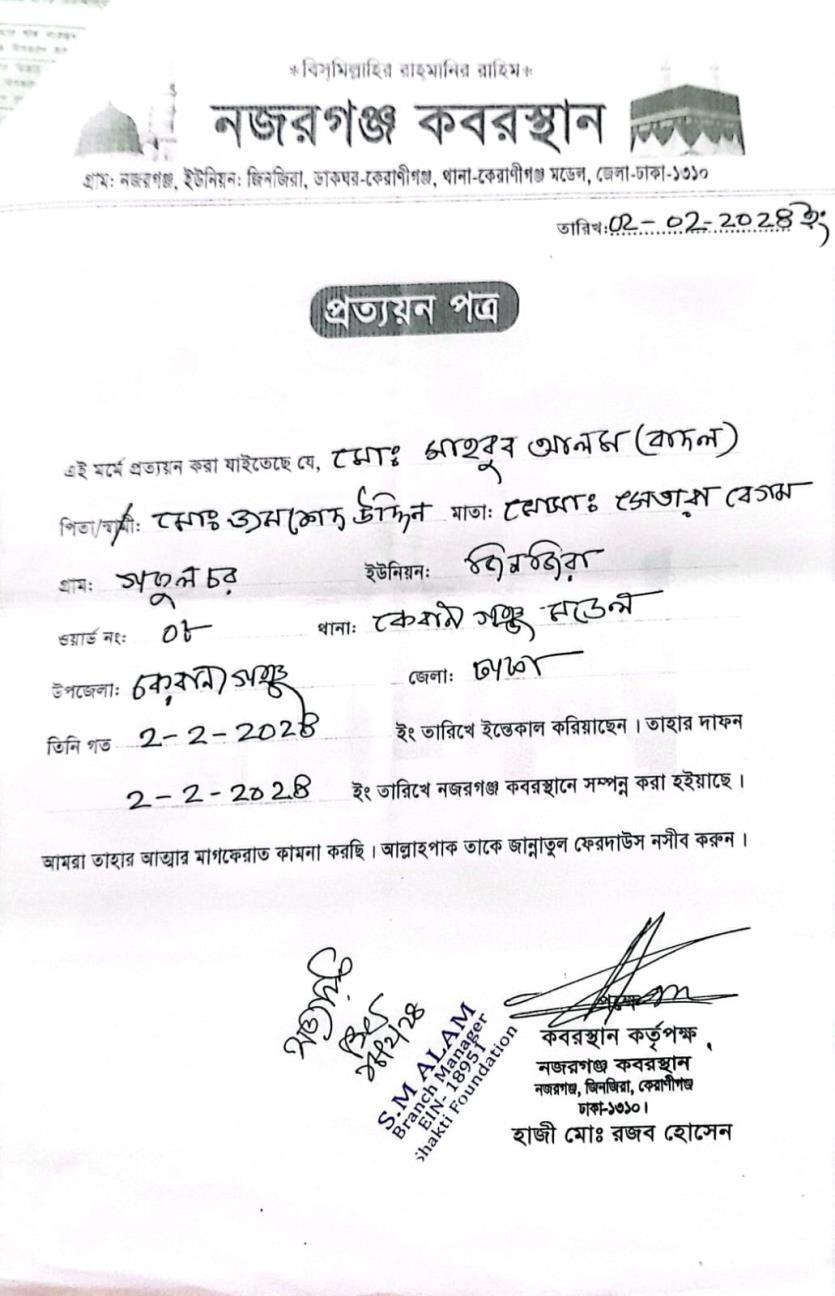 *বিস্‌মিল্লাহির রাহমানির রাহিম*
নজরগঞ্জ কবরস্থান
গ্রাম: নজরগঞ্জ, ইউনিয়ন: জিনজিরা, ডাকঘর-কেরাণীগঞ্জ, থানা-কেরাণীগঞ্জ মডেল, জেলা-ঢাকা-১৩১০
তারিখ: 02-02-202৪ ইং
প্রত্যয়ন পত্র
এই মর্মে প্রত্যয়ন করা যাইতেছে যে, মোঃ মাহবুব আলম (বাদল)
পিতা/স্বামী: মোঃ জমশেদ উদ্দিন মাতা: মোসাঃ সেতারা বেগম
গ্রাম: গদুলচর ইউনিয়ন: জিনজিরা
ওয়ার্ড নং: ০৮ থানা: কেরানীগঞ্জ মডেল
উপজেলা: কেরানীগঞ্জ জেলা: ঢাকা
তিনি গত 2-2-202৪ ইং তারিখে ইন্তেকাল করিয়াছেন। তাহার দাফন
2-2-202৪ ইং তারিখে নজরগঞ্জ কবরস্থানে সম্পন্ন করা হইয়াছে।
আমরা তাহার আত্মার মাগফেরাত কামনা করছি। আল্লাহপাক তাকে জান্নাতুল ফেরদাউস নসীব করুন।
সত্যায়িত
S.M ALAM
Branch Manager
EIN- 18951
Shakti Foundation
পক্ষে
কবরস্থান কর্তৃপক্ষ
নজরগঞ্জ কবরস্থান
নজরগঞ্জ, জিনজিরা, কেরাণীগঞ্জ
ঢাকা-১৩১০।
হাজী মোঃ রজব হোসেন